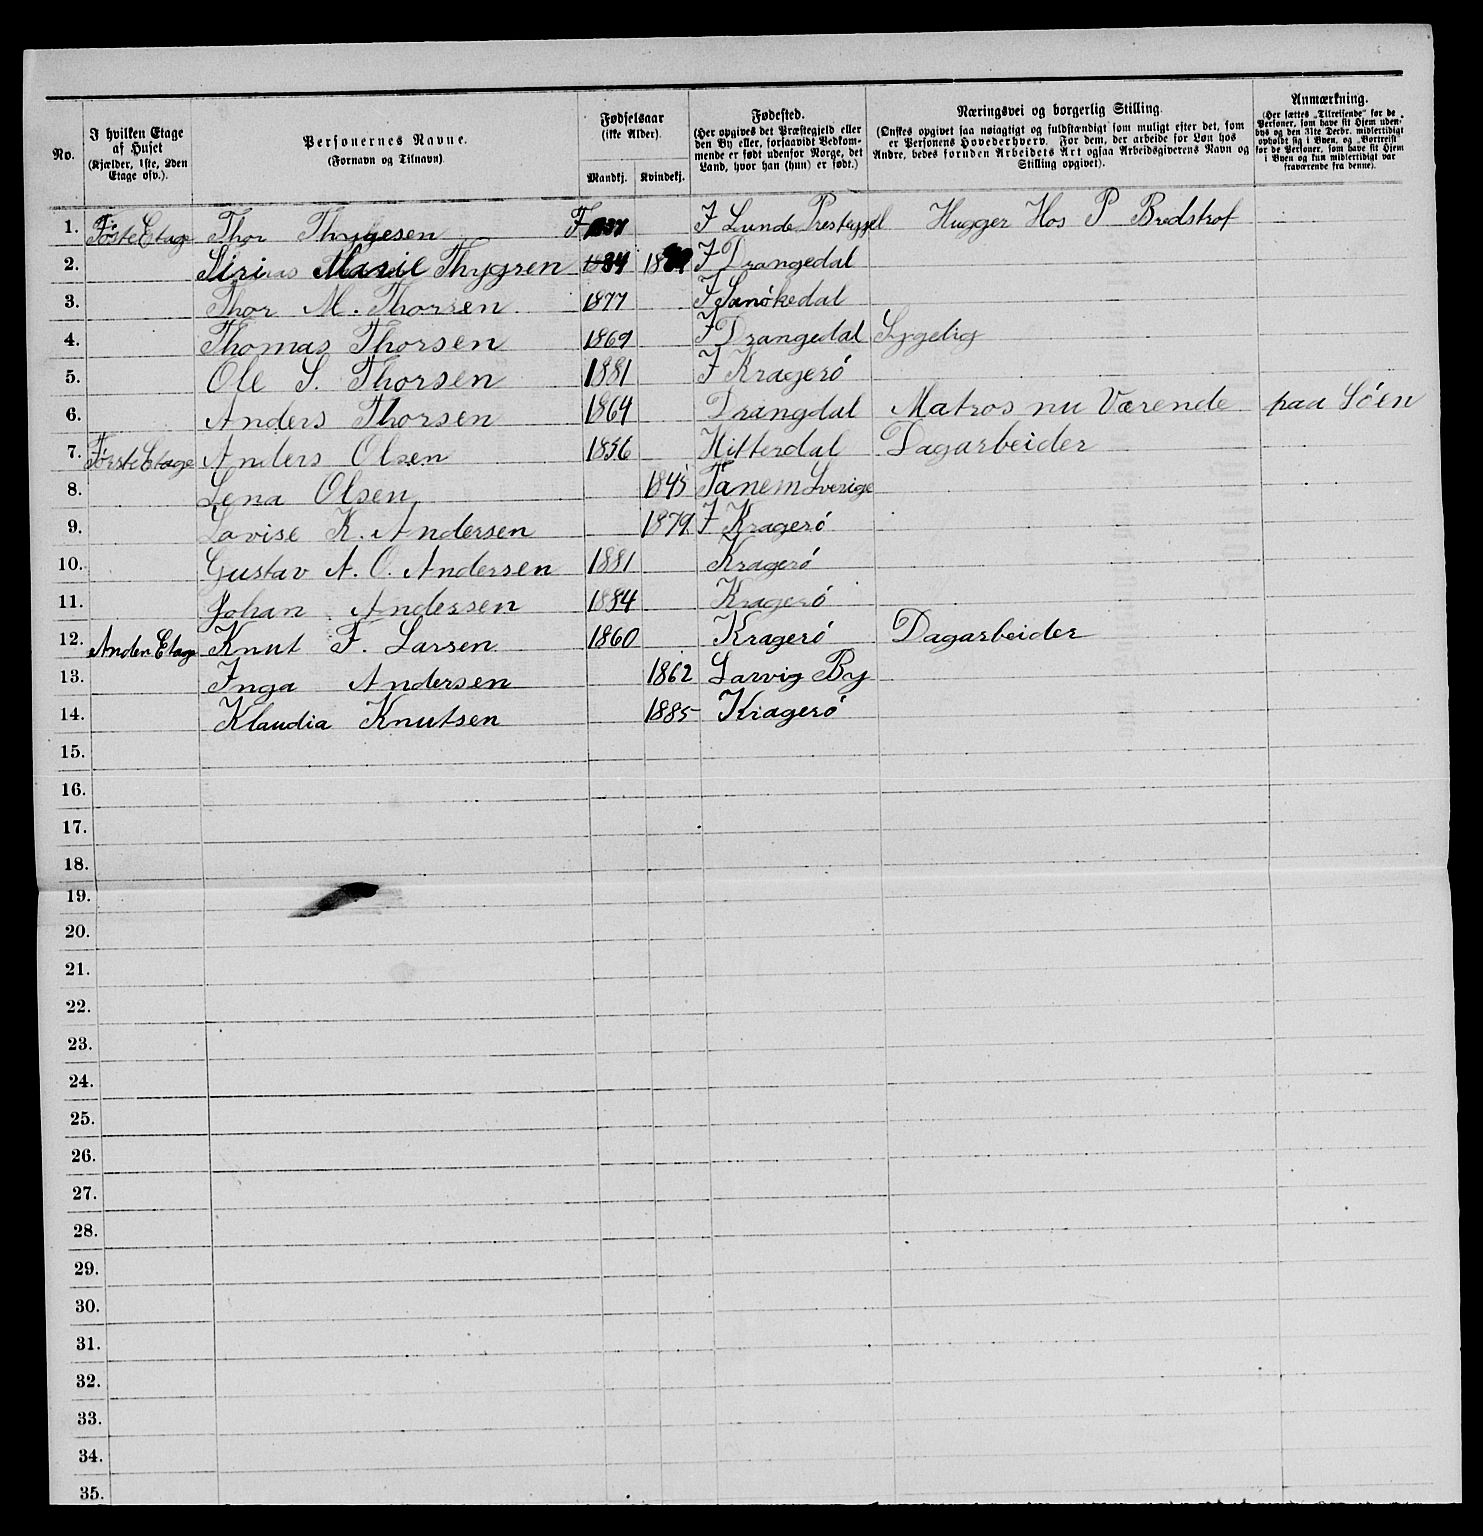 No.
I hvilken Etage
af Huset
(Kjælder, 1ste, 2den
Etage osv.).
Personernes Navne.
(Fornavn og Tilnavn).
Fødselsaar
(ikke Alder).
Mandkj. Kvindekj.
Fødested.
(Her opgives det Præstegjeld eller
den By eller, forsaavidt Vedkom-
mende er født udenfor Norge, det
Land, hvor han (hun) er født.)
Næringsvei og borgerlig Stilling.
(Ønskes opgivet saa nøiagtigt og fuldstændigt som muligt efter det, som
er Personens Hovederhverv. For dem, der arbeide for Løn hos
Andre, bedes foruden Arbeidets Art ogsaa Arbeidsgiverens Navn og
Stilling opgivet).
Anmærkning.
(Her sættes „Tilreisende“ for de
Personer, som have sit Hjem uden-
bys og den 31te Decbr. midlertidigt
opholdt sig i Byen, og „Bortreist“
for de Personer, som have sit Hjem
i Byen og kun midlertidigt var
fraværende fra denne).
1. Føste Etage Thor Thygesen F 1837 I Lunde Hugger Hos P
2. Marie Thygsen 1834 I Drangedal
3. Thor M. Thorsen 1877 I Sanøkedal
4. Thomas Thorsen 1869 I Drangedal Sygelig
5. Ole S. Thorsen 1881 I Kragerø
6. Anders Thorsen 1864 Drangdal Matros nu Værende paa Søen
7. Første Etage Anders Olsen 1856 Hitterdal Dagarbeider
8. Lena Olsen 1845 Tanem Sverige
9. Lovise K. Andersen 1879 I Kragerø
10. Gustav A. O. Andersen 1881 Kragerø
11. Johan Andersen 1884 Kragerø
12. Anden Etage Knut F. Larsen 1860 Kragerø Dagarbeider
13. Inga Andersen 1862 Larvig By
14. Klaudia Knutsen 1885 Kragerø
15.
16.
17.
18.
19.
20.
21.
22.
23.
24.
25.
26.
27.
28.
29.
30.
31.
32.
33.
34.
35.